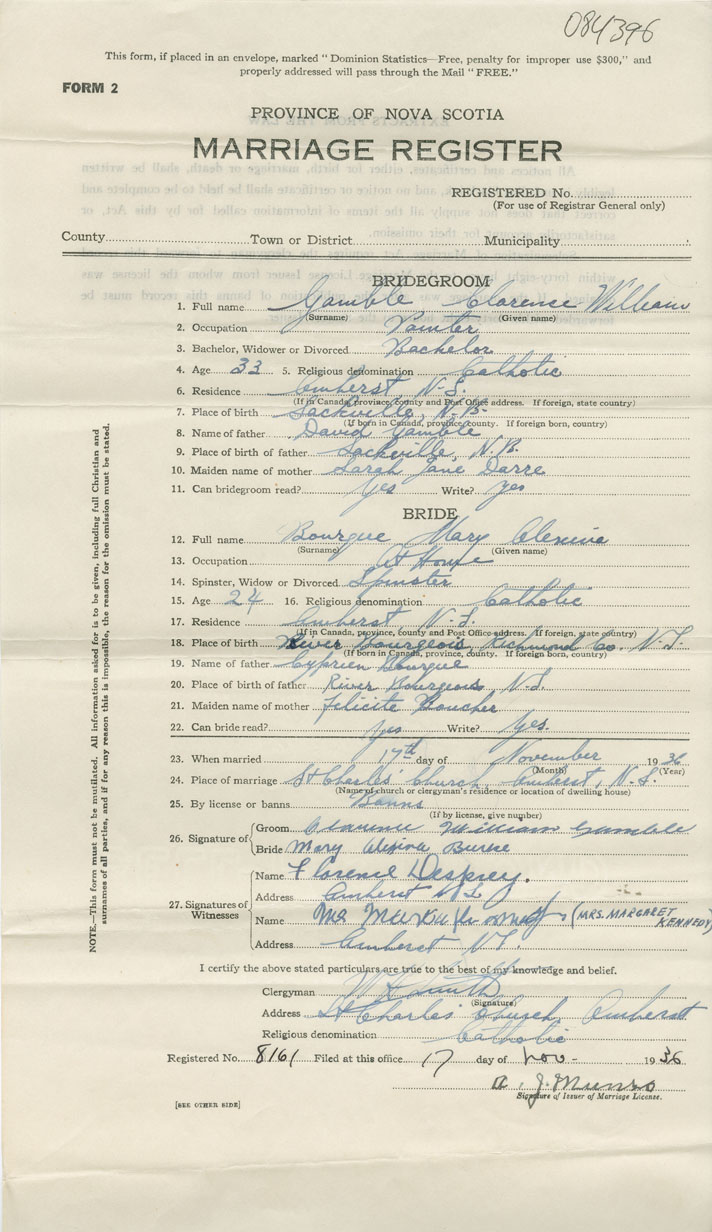 084396
This form, if placed in an envelope, marked "Dominion Statistics—Free, penalty for improper use $300," and
properly addressed will pass through the Mail "FREE."
FORM 2
PROVINCE OF NOVA SCOTIA
MARRIAGE REGISTER
REGISTERED No.
(For use of Registrar General only)
County Town or District Municipality
BRIDEGROOM
1. Full name Gamble Clarence William
(Surname) (Given name)
2. Occupation Painter
3. Bachelor, Widower or Divorced Bachelor
4. Age 33 5. Religious denomination Catholic
6. Residence Amherst N.S.
(If in Canada, province, county and Post Office address. If foreign, state country)
7. Place of birth Sackville, N.B.
(If born in Canada, province, county. If foreign born, country)
8. Name of father David Gamble
9. Place of birth of father Sackville, N.B.
10. Maiden name of mother Sarah Jane Darre
11. Can bridegroom read? Yes Write? Yes
BRIDE
12. Full name Bourque Mary
(Surname) (Given name)
13. Occupation At Home
14. Spinster, Widow or Divorced Spinster
15. Age 24 16. Religious denomination Catholic
17. Residence Amherst N.S.
(If in Canada, province, county and Post Office address. If foreign, state country)
18. Place of birth River Bourgeois, Richmond Co. N.S.
(If born in Canada, province, county. If foreign born, country)
19. Name of father Cyprien Bourque
20. Place of birth of father River Bourgeois, N.S.
21. Maiden name of mother Felicite Boucher
22. Can bride read? Yes Write? Yes.
23. When married 17th day of November 1936
(Month) (Year)
24. Place of marriage St Charles' Church Amherst, N.S.
(Name of church or clergyman's residence or location of dwelling house)
25. By license or banns Banns
(If by license, give number)
26. Signature of
Groom Clarence William Gamble
Bride Mary
27. Signatures of Witnesses
Name Florence Desprey.
Address Amherst N.S.
Name Mrs (MRS. MARGARET KENNEDY)
Address Amherst N.S.
I certify the above stated particulars are true to the best of my knowledge and belief.
Clergyman Smith
(Signature)
Address St Charles' Church, Amherst
Religious denomination Catholic
Registered No. 8161 Filed at this office 17 day of Nov- 1936
A. J. Munro
Signature of Issuer of Marriage License.
[SEE OTHER SIDE]
NOTE.—This form must not be mutilated. All information asked for is to be given, including full Christian and
surnames of all parties, and if for any reason this is impossible, the reason for the omission must be stated.